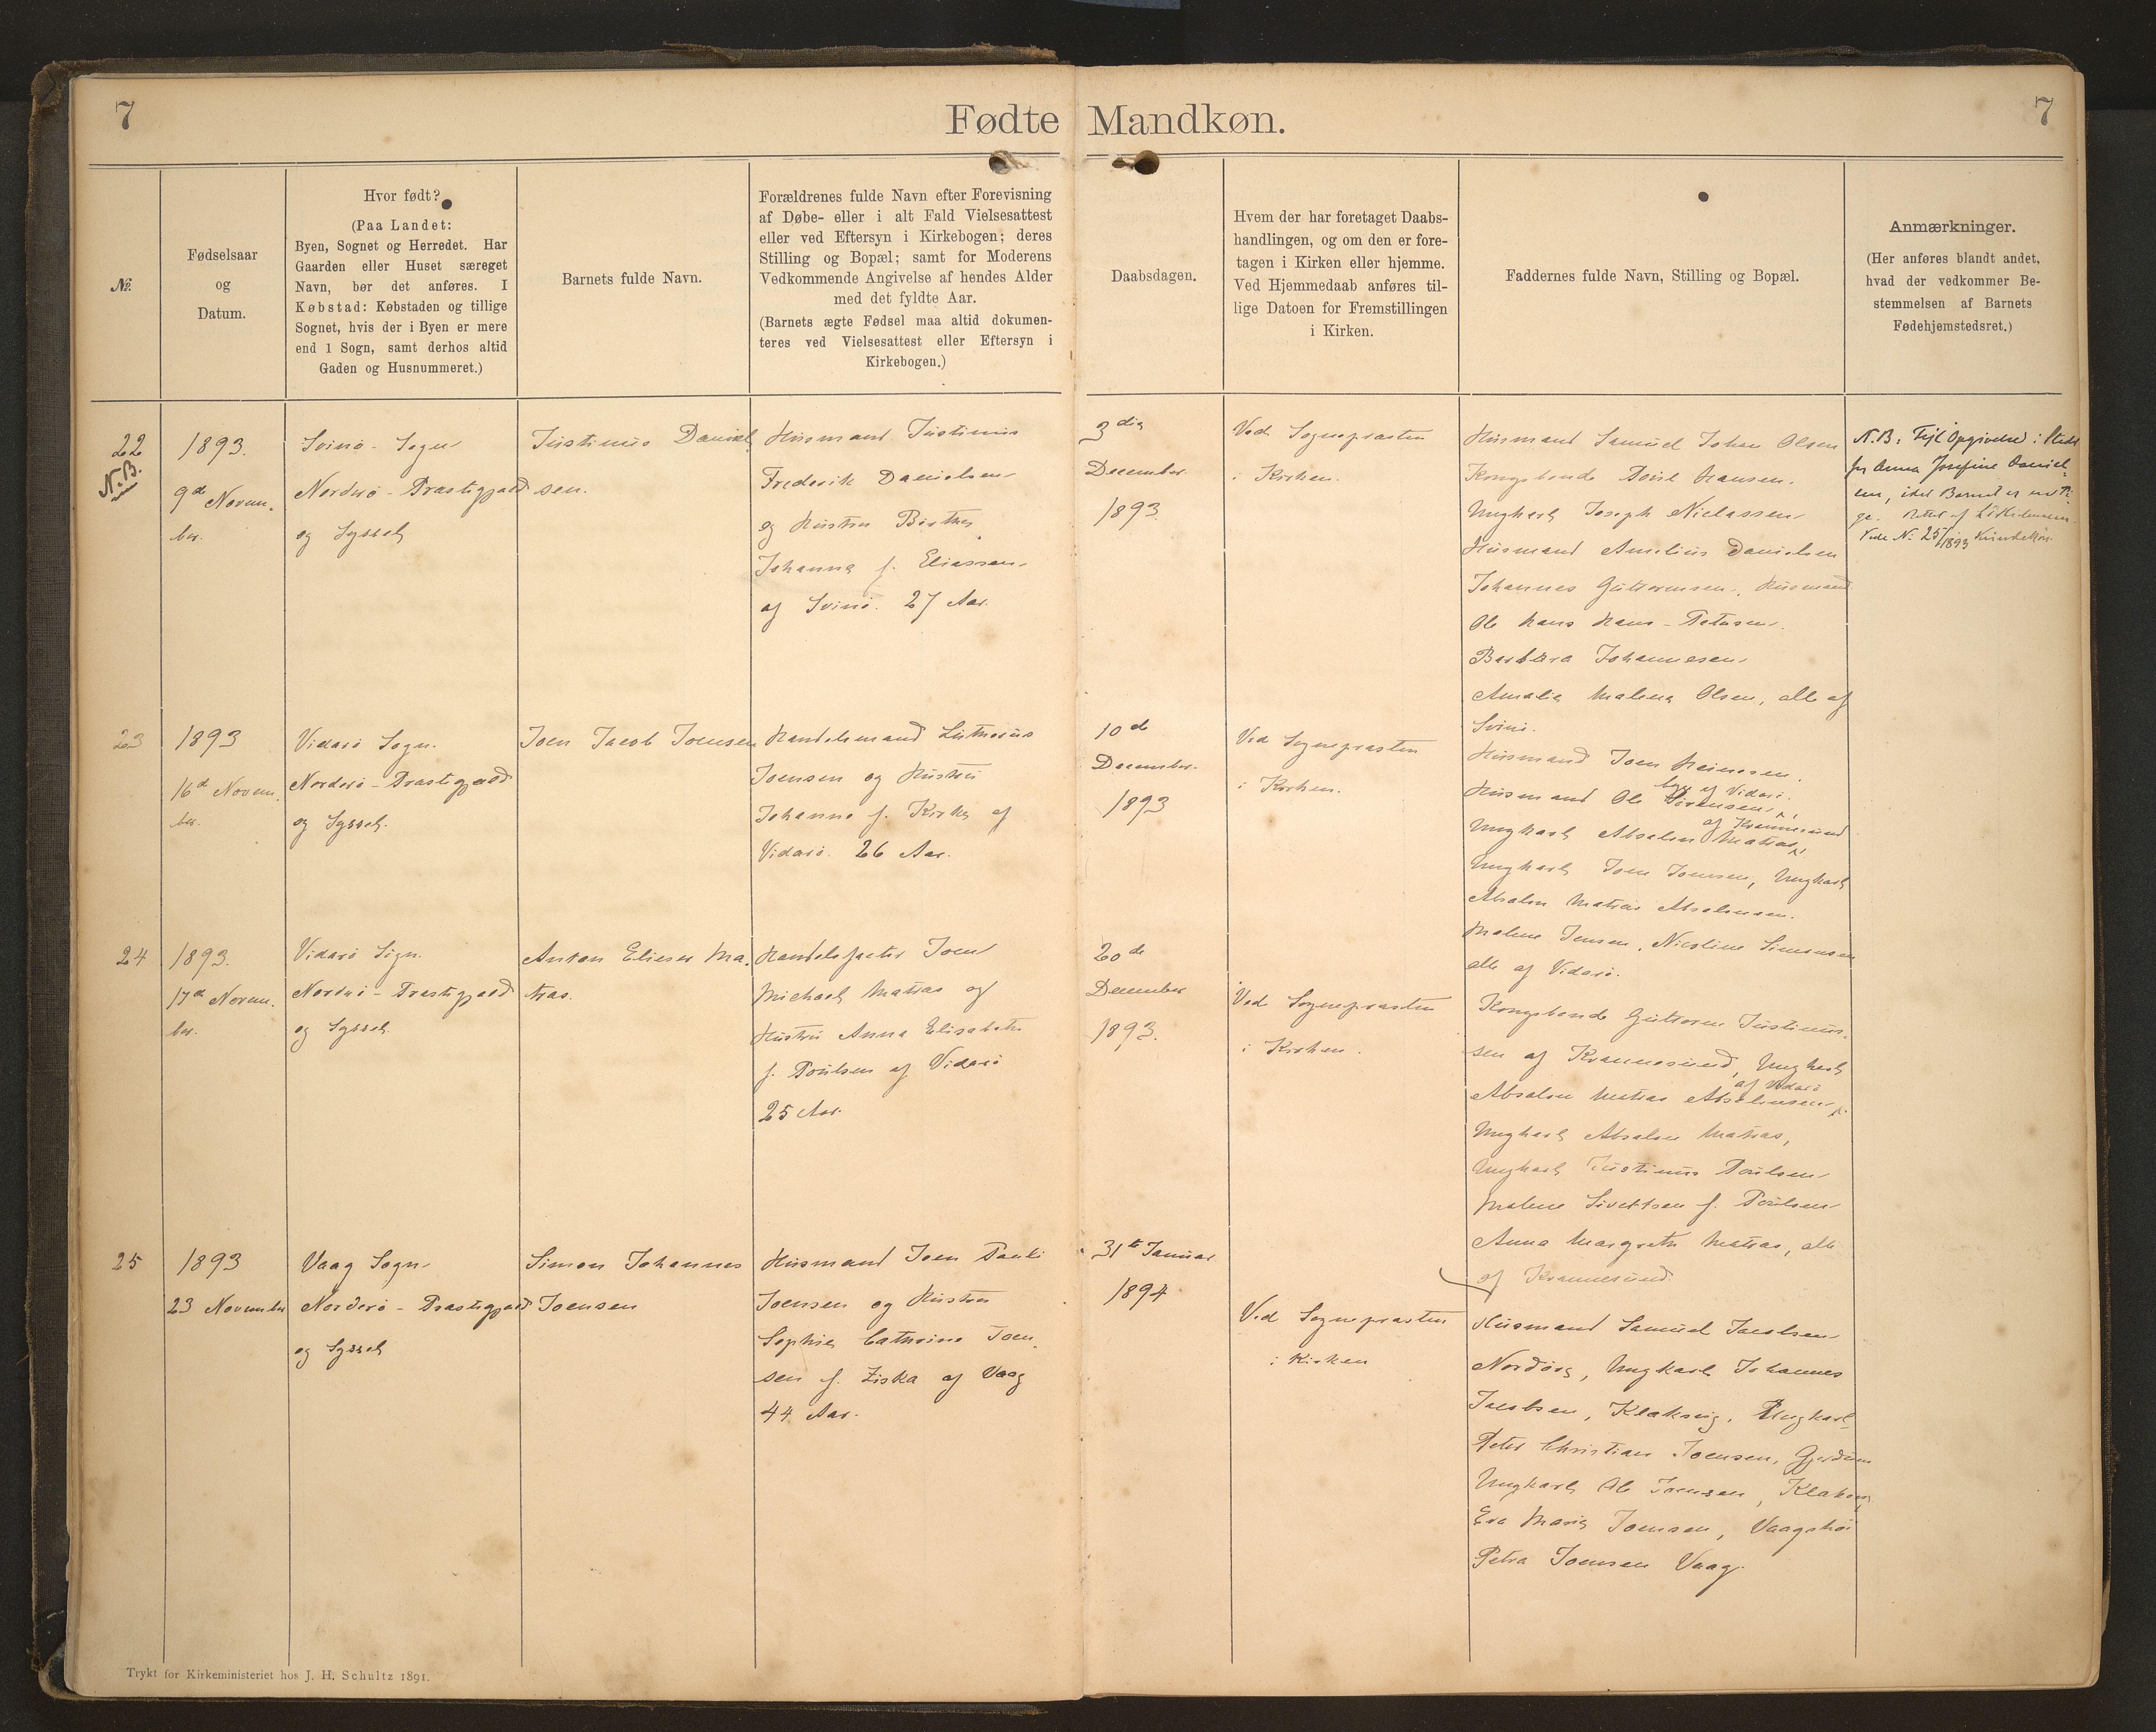 7
Fødte Mandkøn.
7
№
Fødselsaar
og
Datum.
Hvor født?
(Paa Landet:
Byen, Sognet og Herredet. Har
Gaarden eller Huset særeget
Navn, bør det anføres. I
Købstad: Købstaden og tillige
Sognet, hvis der i Byen er mere
end 1 Sogn, samt derhos altid
Gaden og Husnummeret.)
Barnets fulde Navn.
Forældrenes fulde Navn efter Forevisning
af Døbe- eller i alt Fald Vielsesattest
eller ved Eftersyn i Kirkebogen; deres
Stilling og Bopæl; samt for Moderens
Vedkommende Angivelse af hendes Alder
med det fyldte Aar.
(Barnets ægte Fødsel maa altid dokumen-
teres ved Vielsesattest eller Eftersyn i
Kirkebogen.)
Daabsdagen.
Hvem der har foretaget Daabs-
handlingen, og om den er fore-
tagen i Kirken eller hjemme.
Ved Hjemmedaab anføres til-
lige Datoen for Fremstillingen
i Kirken.
Faddernes fulde Navn, Stilling og Bopæl.
Anmærkninger.
(Her anføres blandt andet,
hvad der vedkommer Be-
stemmelsen af Barnets
Fødehjemstedsret.)
22
N.B.
1893.
9d Novem.
ber.
Svinø - Sogn
Norderø - Præstegjæld
og Syssel
Justinus Daniel
sen.
Husmand Justinus
Frederik Danielsen
og Hustru Birthe
Johanna f. Eliassen
af Svinø. 27 Aar.
3die
December
1893
Ved Sognepræsten
i Kirken.
Husmand Samuel Johan Olsen
Kongsbonde Poul Hansen.
Ungkarl Joseph Niclassen
Husmand Amelius Danielsen
Johannes Guttormsen, Husmand
Ole Hans Hans-Petersen
Barbara Johannesen
Amalia Malena Olsen, alle af
Svinø.
N.B. Fejl Opgivelse i Stedet
for Anna Josefine Daniel-
sen, idet Barnet er en Pi-
ge.
Vide N. 25/1893 Kvindekøn.
23
1893
16d Novem.
ber.
Viderø Sogn.
Norderø - Præstegjæld
og Syssel.
Joen Jacob Joensen
Handelsmand Lutherus
Joensen og Hustru
Johanne f. Kirke af
Viderø. 26 Aar.
10d
December
1893
Ved Sognepræsten
i Kirken.
Husmand Joen Heinesen.
begge af Viderø.
Husmand Ole Sivertsen,
af Kvannesund
Ungkarl Absalon Matras,
Ungkarl Joen Joensen, Ungkarl
Absalon Matras Absalonsen.
Malene Jensen, Nicoline Simonsen
alle af Viderø.
24
1893.
17d Novem.
ber.
Viderø Sogn.
Norderø - Præstegjæld
og Syssel.
Anton Elieser Ma.
tras.
Handelsfactor Joen
Michael Matras og
Hustru Anna Elisabeth
f. Poulsen af Viderø
25 Aar.
20de
December
1893.
Ved Sognepræsten
i Kirken.
Kongsbonde Guttorm Justinus.
sen af Kvannesund, Ungkarl
af Viderø
Absalon Matras Absalonsen,
Ungkarl Absalon Matras,
Ungkarl Justinus Poulsen
Malene Sivertsen f. Poulsen
Anna Margrethe Matras, alle
af Kvannesund.
25
1893
23 November
Vaag Sogn
Norderø - Præstegjæld
og Syssel
Simon Johannes
Joensen
Husmand Joen Pauli
Joensen og Hustru
Sophie Cathrine Joen.
sen f. Ziska af Vaag
44 Aar.
31te Januar
1894
Ved Sognepræsten
i Kirken
Husmand Samuel Jacobsen
Nordøre, Ungkarl Johannes
Jacobsen, Klaksvig, Ungkarl
Peter Christian Joensen, Gjerdum
Ungkarl Ole Joensen, Klaksvig
Eva Marie Joensen, Vaagshøi
Petra Joensen Vaag.
Trykt for Kirkeministeriet hos J. H. Schultz 1891.